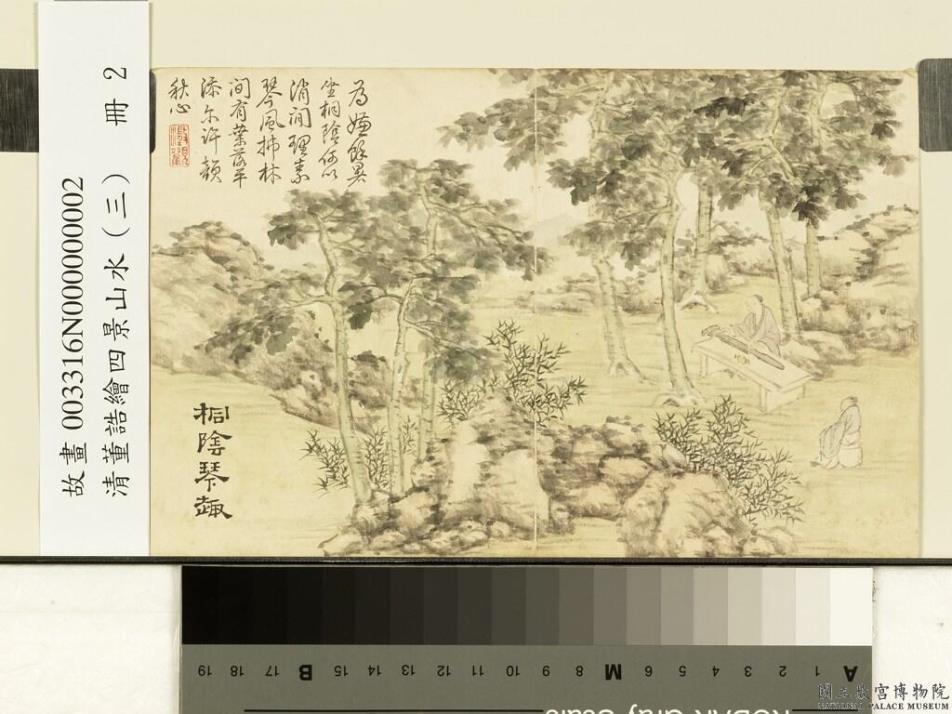 故畫 003316N000000002
清董誥繪四景山水(三) 冊 2
為嫌餘暑
坐桐陰何以
消閒理素
琴風拂林
間有葉落平
添尔許韻
秋心
桐陰琴趣
A 1 2 3 4 5 6 M 8 9 10 11 12 13 14 15 B 17 18 19
KODAK Gray Scale
國立故宮博物院
NATIONAL PALACE MUSEUM